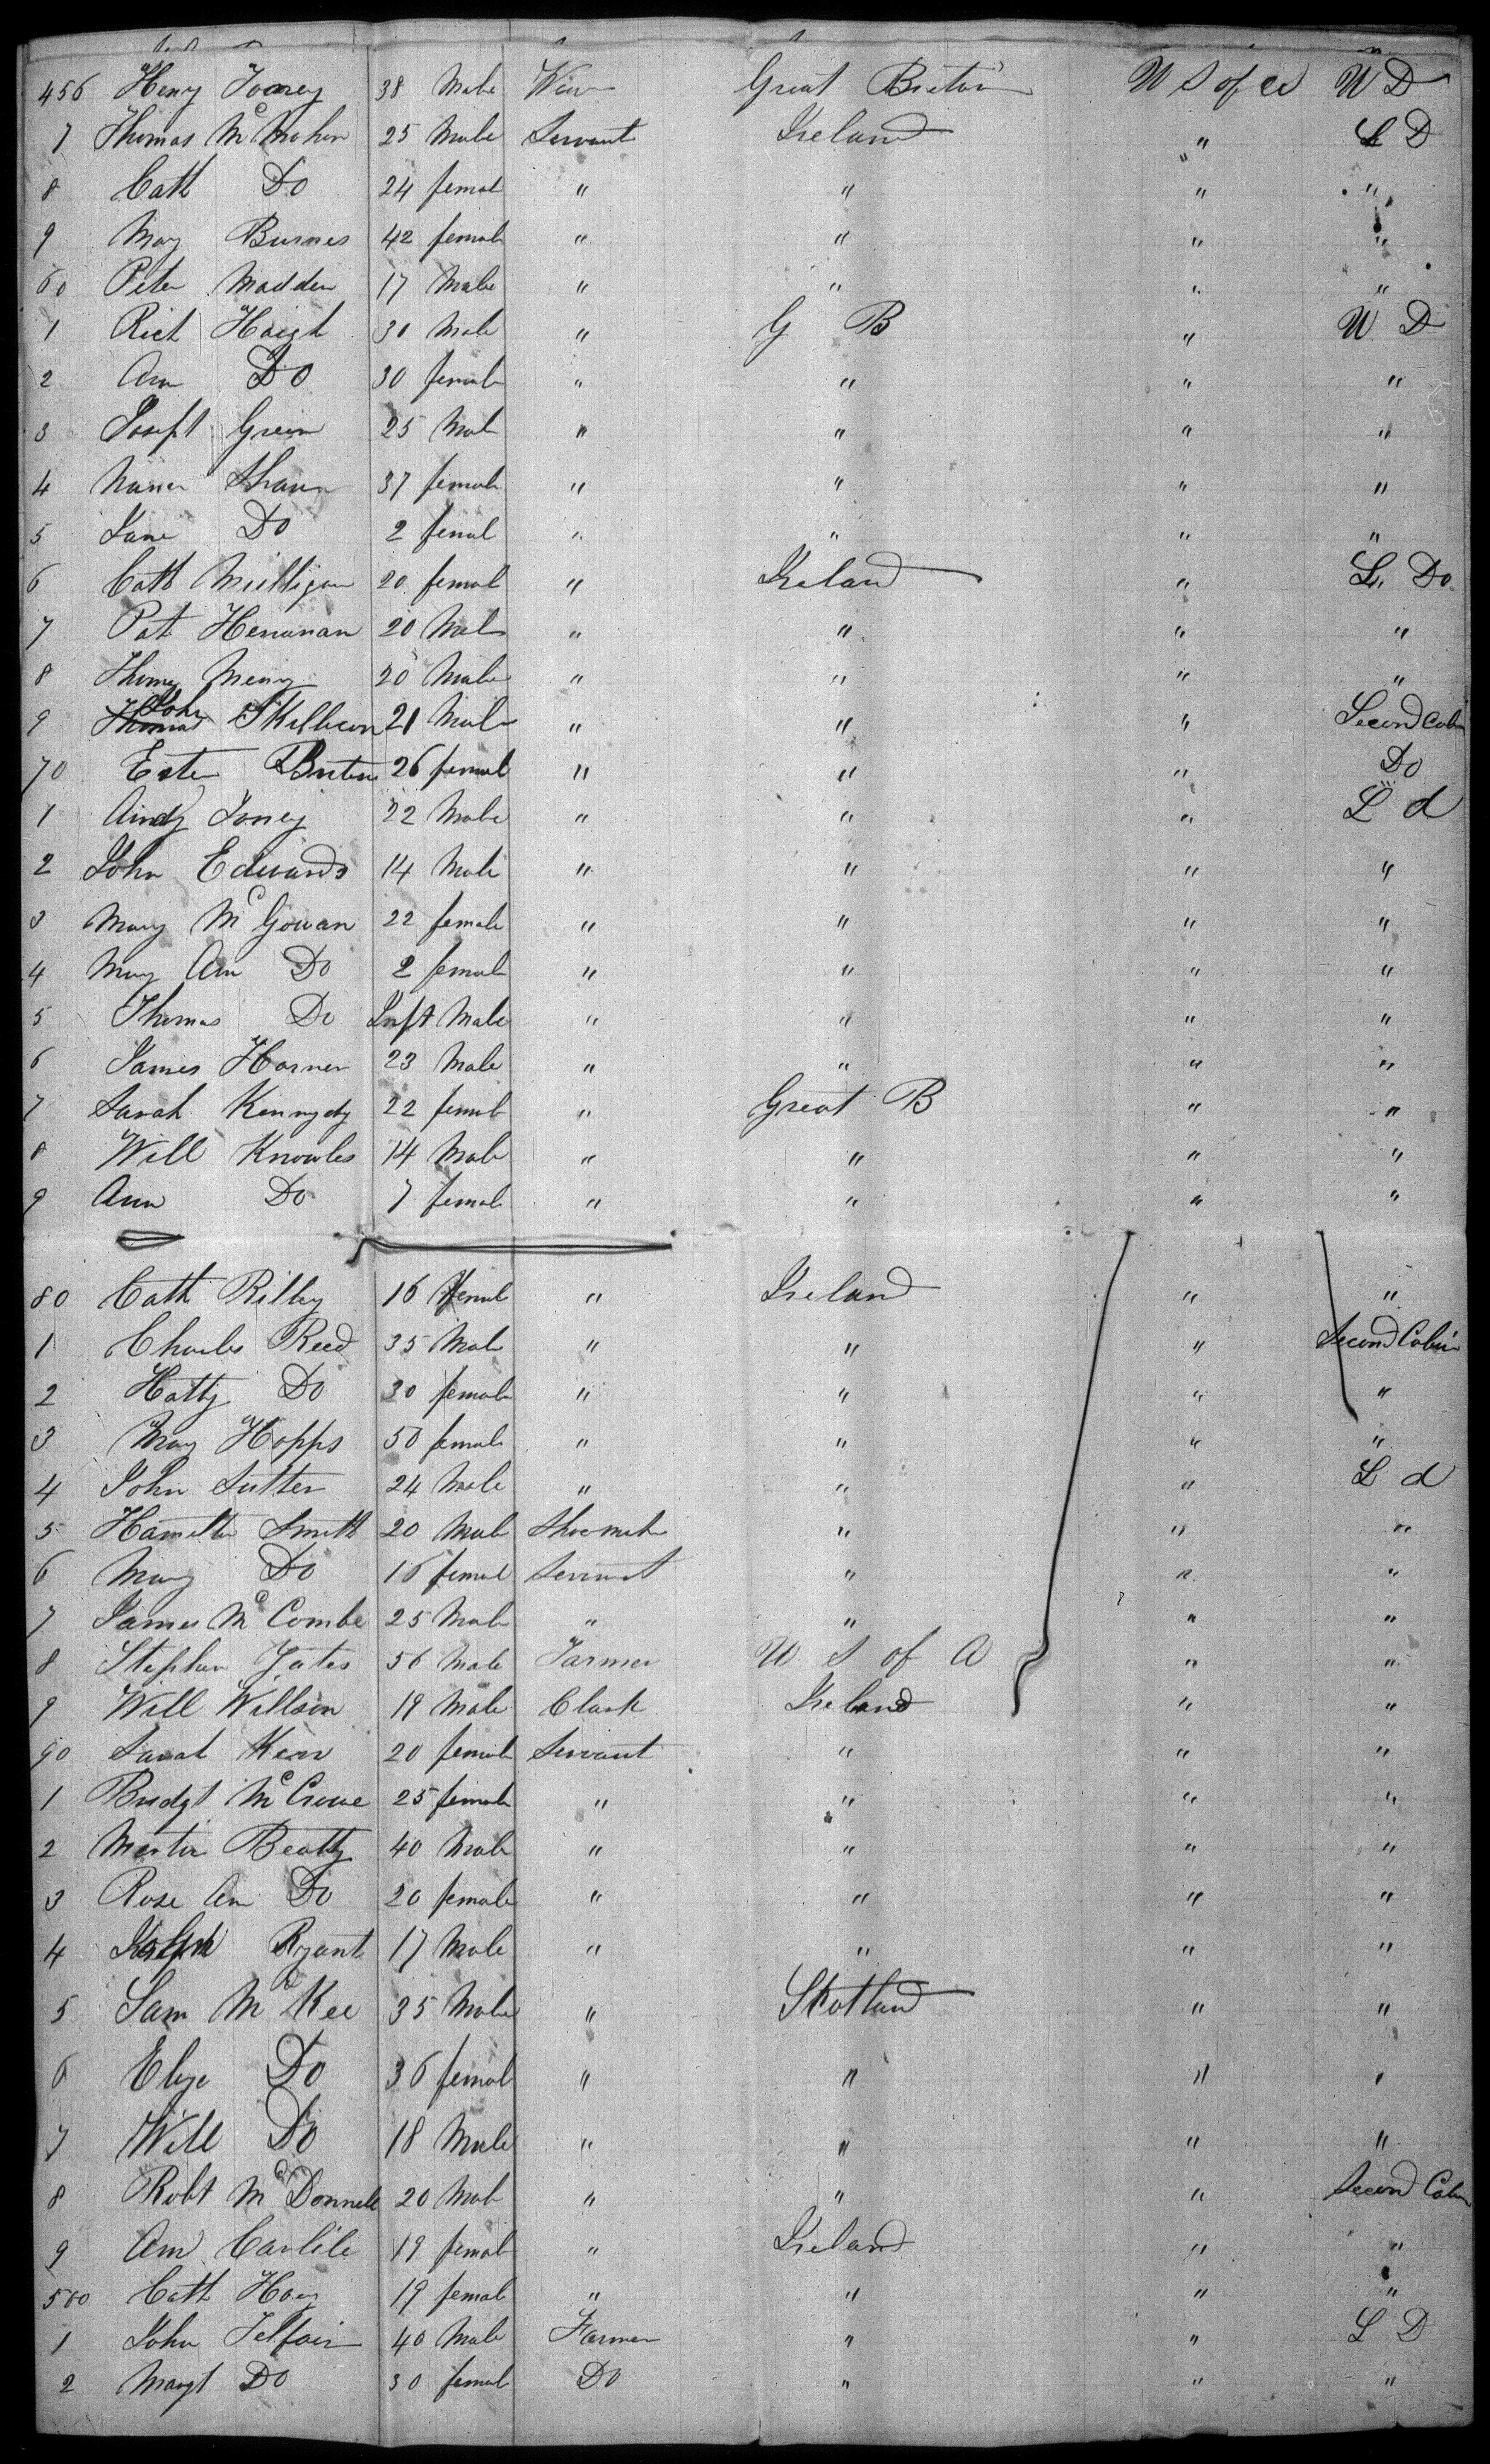 456 Henry Toovey 38 Male Great Britain U S of A U D
7 Thomas McMahon 25 Male Servant Ireland " L D
8 Cath Do 24 female " " " "
9 May Burnes 42 female " " " "
60 Peter Madden 17 Male " " " "
1 Rich Haigh 30 Male " G B " U D
2 Ann Do 30 female " " " "
3 Joseph Green 25 Male " " " "
4 37 female " " " "
5 Jane Do 2 femal " " " "
6 Cath Mulligan 20 femal " Ireland " L Do
7 Pat Henanan 20 Male " " " "
8 20 Male " " " "
9 John Skellicon 21 Male " " " Second Cabin
70 Ester 26 femal " " " Do
1 Andy Toney 22 Male " " " L d
2 John Edwards 14 Male " " " "
3 Mary McGowan 22 female " " " "
4 Mary Ann Do 2 female " " " "
5 Thomas Do Inft Male " " " "
6 James Horner 23 Male " " " "
7 Sarah Kennydy 22 femal " Great B " "
8 Will Knowles 14 Male " " " "
9 Ann Do 7 femal " " " "
80 Cath Rilley 16 femal " Ireland " "
1 Charles Reed 35 Male " " " Second Cabin
2 Hatty Do 30 female " " " "
3 May Hopps 50 female " " " "
4 John Sutter 24 Male " " " L d
5 Hamilton Smith 20 Male Shoemak " " "
6 Mary Do 16 femal Servant " " "
7 James McCombe 25 Male " " " "
8 Stephen Yates 56 Male Farmer U S of A " "
9 Will Willson 19 Male Clark Ireland " "
90 Sarah Kerr 20 female Servant " " "
1 Bridgt McCrowe 25 female " " " "
2 Martin Beatty 40 Male " " " "
3 Rose An Do 20 female " " " "
4 Ryant 17 Male " " " "
5 Sam McKee 35 Male " Skotland " "
6 Elize Do 36 femal " " " "
7 Will Do 18 Male " " " "
8 Robt McDonnell 20 Male " " " Second Cabin
9 Ann Carlile 19 femal " Ireland " "
500 Cath Hoey 19 femal " " " "
1 John Telfair 40 Male Farmer " " L D
2 Margt Do 30 femal Do " " "